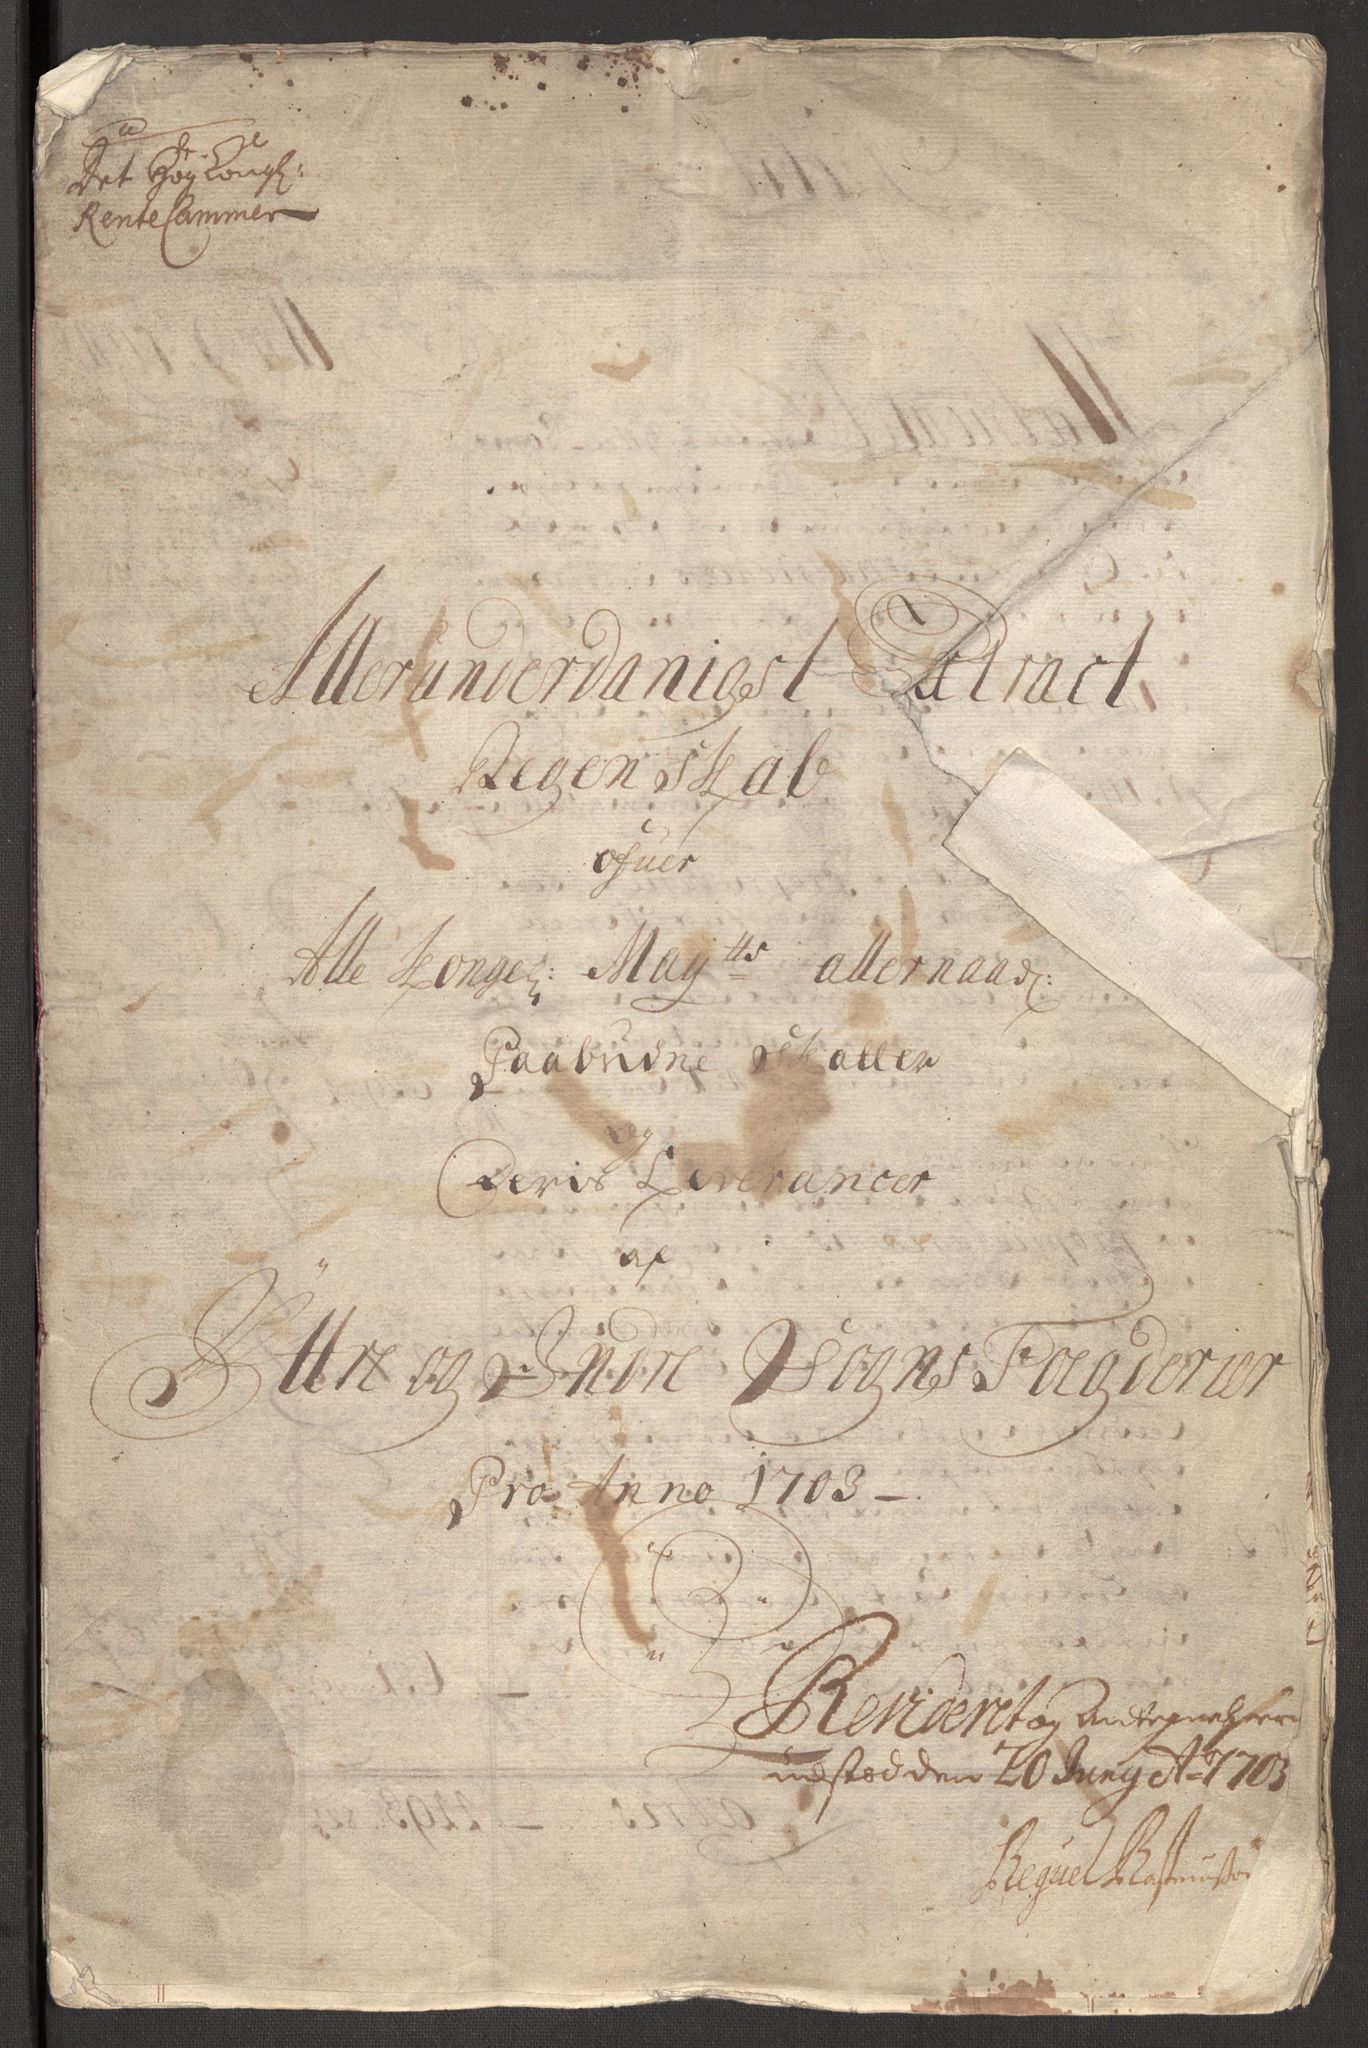 Det Høy Kongl:
RenteCammer
Allerunderdanigst Extract
Regenskab
ofuer
Alle Kongel: Maytts allernaad:
Paabudne Skatter
og
Deris Leverancer
af
Üttre og Indre Sogns Fogderier
Pro Anno 1703
Revideret og
udsted den 20 Juny Ao 1703
Reguel Rasmussø